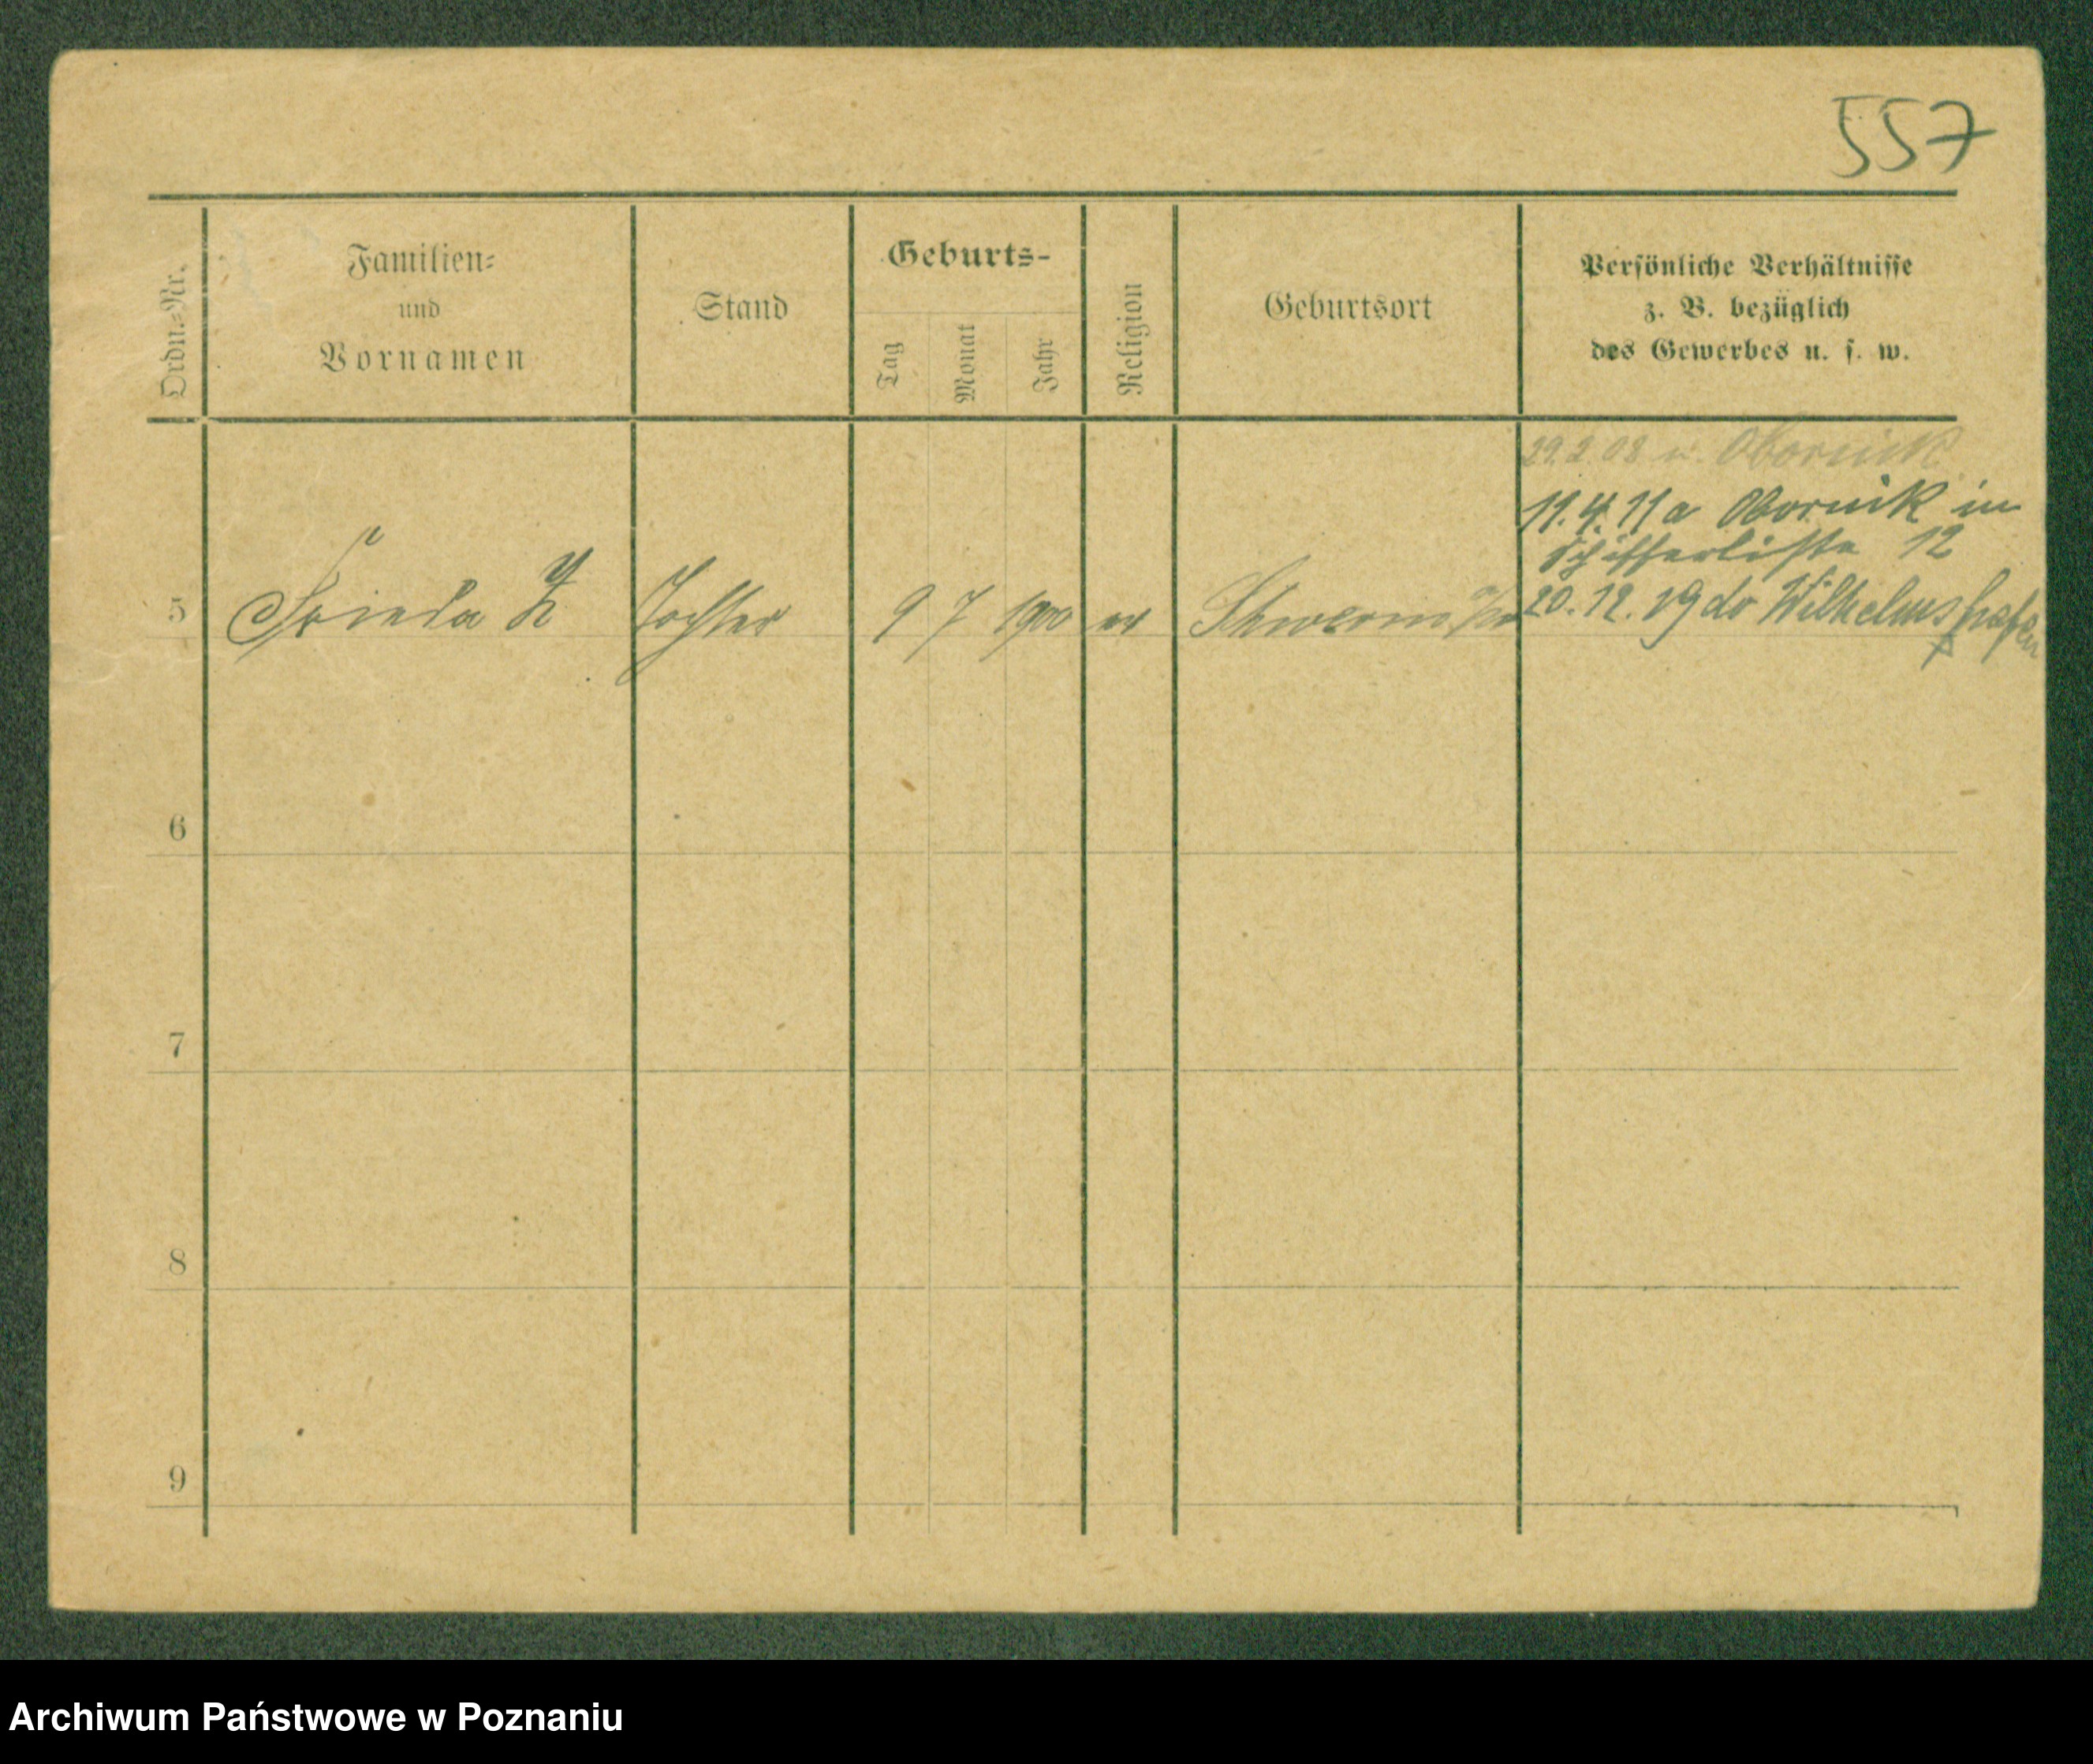 557
Ordn.-Nr.
Familien-
und
Vornamen
Stand
Geburts-
Tag
Monat
Jahr
Religion
Geburtsort
Persönliche Verhältnisse
z. B. bezüglich
des Gewerbes u. s. w.
29.2.08 n. Obornik
11.4.11 a Obornik in
Schifferliste 12
5 Frieda Tochter 9 7 1900 ev Schwerin 20.12.19 do Wilhelmshafen
6
7
8
9
Archiwum Państwowe w Poznaniu